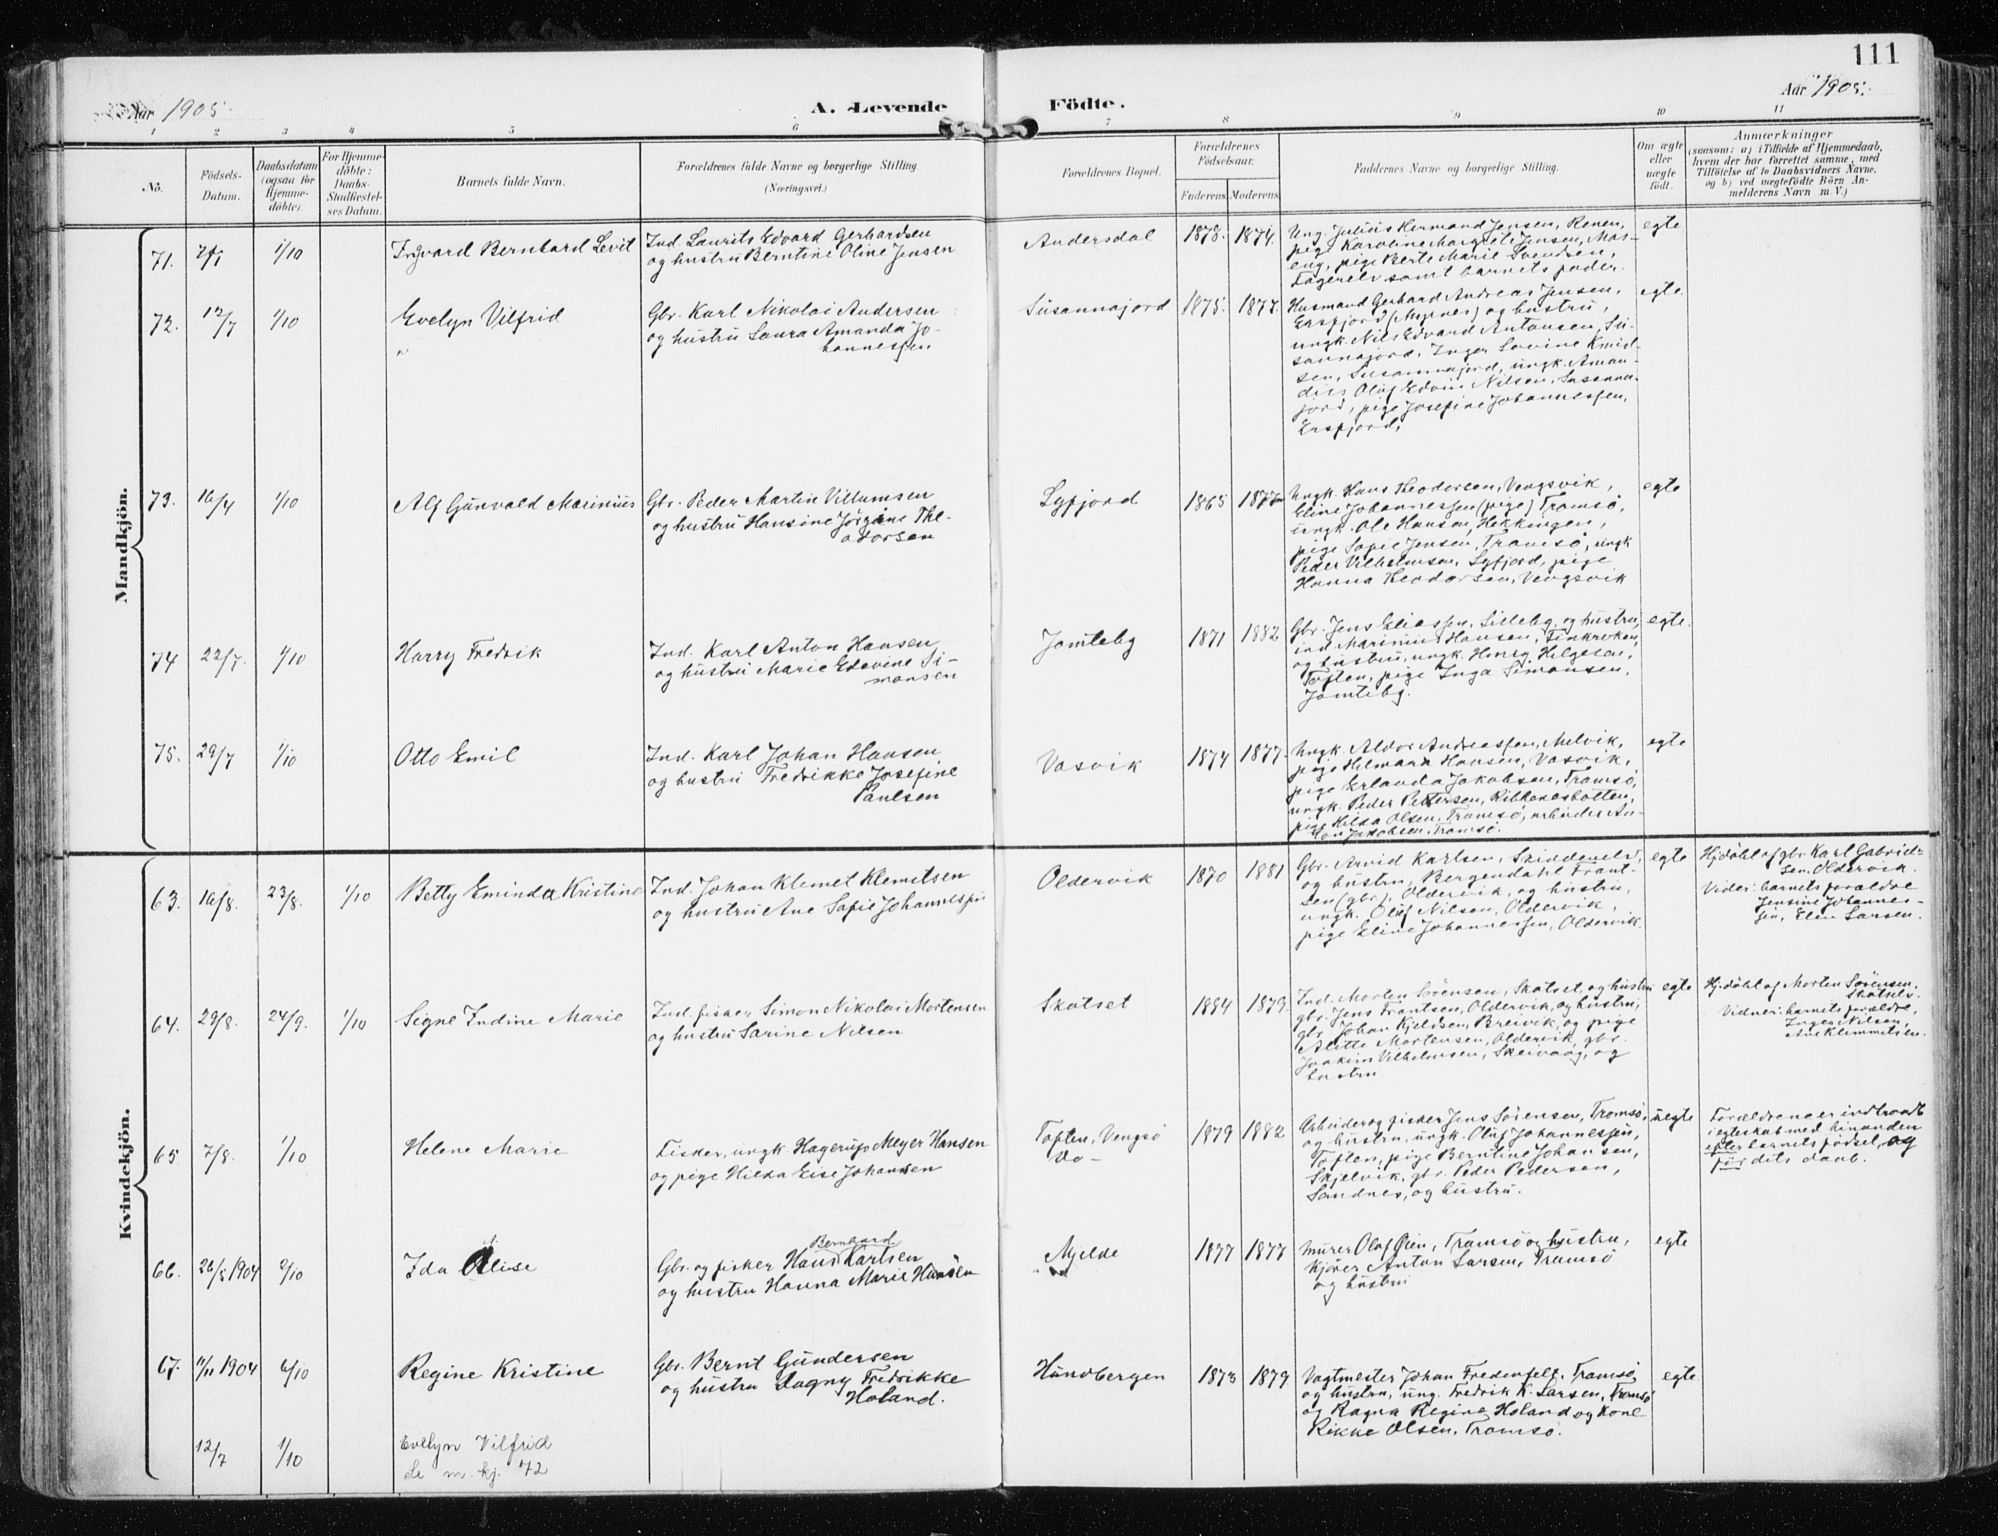 111
Aar 1905.
A. Levende
Födte.
Aar 1905.
1 2 3 4 5 6 7 8 9 10 11
No.
Födsels-
Datum.
Daabsdatum
(ogsaa for
Hjemme-
döbte).
For Hjemme-
döbte:
Daabs-
Stadfæstel-
ses Datum.
Barnets fulde Navn.
Forældrenes fulde Navne og borgerlige Stilling.
(Næringsvei.)
Forældrenes Bopæl.
Forældrenes
Födselsaar.
Faderens. Moderens.
Faddernes Navne og borgerlige Stilling.
Om ægte
eller
uægte
födt.
Anmærkninger
(saasom: a) i Tilfælde af Hjemmedaab,
hvem der har forrettet samme, med
Tilföielse af to Daabsvidners Navne,
og b) ved uægtefödte Börn An-
melderens Navn m. V.)
Mandkjön.
71. 7/7 1/10 Ingvard Bernhard Levit
Ind. Laurits Edvard Gerhardsen
og hustru Berntine Oline Jensen
Andersdal 1878. 1874.
Ung. Julius Hermand Jensen, Renen,
pige Karoline Margrete Jensen, Mas-
eng, pige Berte Marie Svendsen,
Fagerelv samt barnets fader.
egte
72. 12/7 1/10 Evelyn Vilfrid
Gbr. Karl Nikolai Andersen
og hustru Laura Amanda Jo-
hannessen
Susannajord 1875. 1877.
Husmand Gerhard Andreas Jensen,
Ersfjord (Mypnes) og hustru,
ungk. Nils Edvard Antonsen, Su-
sannajord, Inger Lovine Knud-
sen, Susannajord, ungk. Aman-
dius Oluf Edvin Nilsen, Susanna-
jord, pige Josefine Johannessen,
Ersfjord,
egte.
73. 16/7 1/10 Alf Gunvald Marinius
Gbr. Peder Martin Villumsen
og hustru Hansine Jörgine The-
odorsen
Lyfjord 1865 1877
Ungk. Hans Theodorsen, Vengsvik,
Eline Johannessen (pige) Tromsø,
ungk. Ole Hansen, Hekkingen,
pige Sofie Jensen, Tromsø, ungk
Peder Vilhelmsen, Lyfjord, pige
Hanna Theodorsen, Vengsvik
egte
74 22/7. 1/10 Harry Fredrik
Ind. Karl Anton Hansen
og hustru Marie Edevine Si-
monsen
Jomteby 1871 1882
Gbr. Jens Eliassen, Lilleby, og hustru,
ind. Marinius Hansen, Finkroken,
og hustru, ungk. Henry Helgesen,
Toften, pige Inga Simonsen,
Jomteby.
egte.
75. 29/7 1/10 Otto Emil
Ind. Karl Johan Hansen
og hustru Fredrikke Josefine
Paulsen
Vasvik 1874 1877.
Ungk. Aldor Andreassen, Melvik,
pige Helmara Hansen, Vasvik,
pige Erlanda Jakobsen, Tromsø,
ungk. Peder Pettersen, Ribbenesbotten,
pige Hilda Olsen, Tromsø, arbeider An-
ton Jakobsen, Tromsø.
egte
Kvindekjön.
63. 16/8. 23/8. 1/10 Betty Eminda Kristine
Ind. Johan Klemet Klemitsen
og hustru Ane Sofie Johannessen
Oldervik 1870 1881
Gbr. Arvid Karlsen, Skindenelv,
og hustru, Bergendahl Frant-
sen (gbr.), Oldervik, og hustru,
ungk. Oluf Nilsen, Oldervik,
pige Eline Johannessen, Oldervik.
egte
Hjdöbt af gbr. Karl Gabriel-
sen, Oldervik.
Vidner: barnets forældre
Jensine Johannes-
sen, Elen Larsen.
64. 29/8. 24/9. 1/10 Signe Indine Marie
Ind. fisker Simon Nikolai Mortensen
og hustru Sarine Nilsen
Skatset 1884 1879
Ind. Morten Sørensen, Skatset, og hustru
gbr. Jens Frantsen, Oldervik, og hustru,
gbr. Johan Kjeldsen, Breivik, og pige
Alette Mortensen, Oldervik, gbr.
Joakim Vilhelmsen, Skeivaag, og
hustru
egte
Hjdöbt af Morten Sørensen,
Skatset.
Vidner: barnets forældre,
Inger Nilsen,
Ane Klemmetsen.
65 7/8. 1/10 Helene Marie
Fisker, ungk. Hagerup Meyer Hansen
og pige Hilda Elise Johansen
Toften, Vengsö
Do—
1879 1882
Arbeider og fisker Jens Sørensen, Tromsø,
og hustru, ungk. Oluf Johannessen,
Toften, pige Berntine Johansen,
Skjelvik, gbr. Peder Pedersen,
Sandnes, og hustru.
uegte
Forældrene er indtraadt
i egteskab med hinanden
efter barnets fødsel, og
før dets daab.
66. 26/8 1904 2/10 Ida Alise
Gbr. og fisker Hans Bernhard Karlsen
og hustru Hanna Marie Hansen
Mjelde 1877 1877
Murer Olaf Øien, Tromsø og hustru,
kjører Anton Larsen, Tromsø
og hustru
egte
67. 11/11 1904 6/10 Regine Kristine
Gbr. Bernt Gundersen
og hustru Dagny Fredrikke
Holand.
Hundbergen 1873 1879
Vagtmester Johan Fredenfelt, Tromsø
og hustru, ung. Fredrik K. Larsen, Tromsø
og Ragna Regine Holand og Kone
Rikke Olsen, Tromsø.
egte
12/7 1/10 Evelyn Vilfrid
Se m. kj. 72